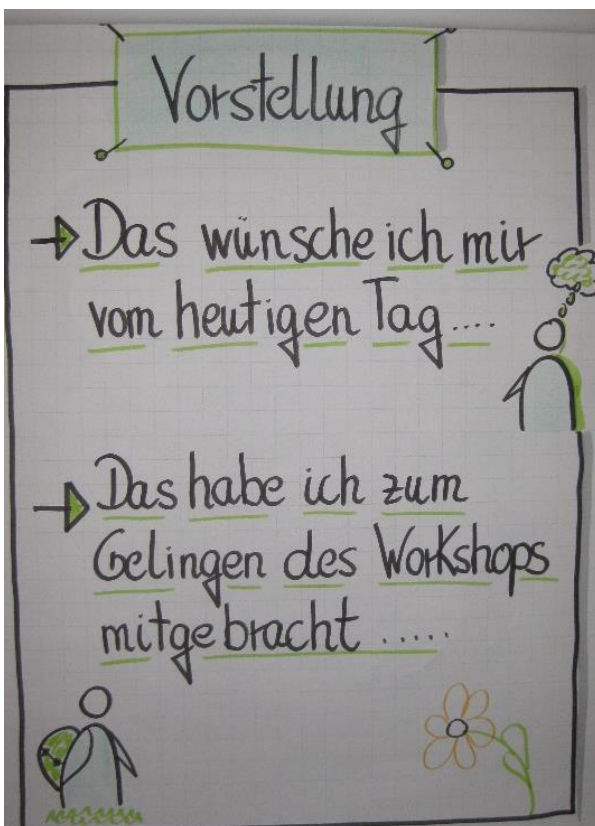 Vorstellung
Das wünsche ich mir
vom heutigen Tag....
Das habe ich zum
Gelingen des Workshops
mitgebracht .....